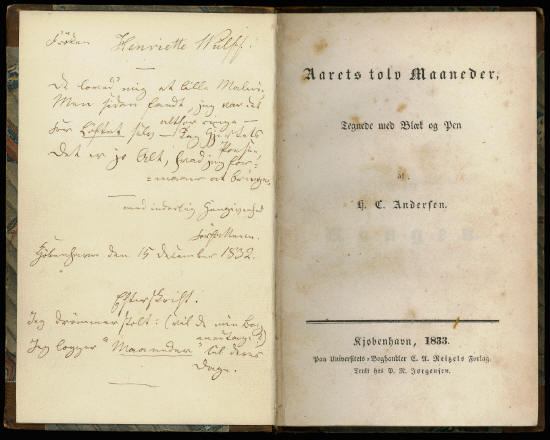 Frøken Henriette Wulff!
De loved' mig et lille Maleri,
Men siden fandt, jeg var det
altfor ringe —
— Jeg Hjertets
Det er jo Alt, hvad jeg for-
=maaer at bringe.
med inderlig Hengivenhed
Forfatteren.
Kjöbenhavn den 15 December 1832.
Efterskrift:
Jeg drömmer stolt: (vil de min Bog
modtage)
Jeg lægger "Maaneder" til deres
Dage.
Aarets tolv Maaneder,
Tegnede med Blæk og Pen
af
H. C. Andersen.
Kjøbenhavn, 1833.
Paa Universitets-Boghandler C. A. Reitzels Forlag.
Trykt hos P. N. Jorgensen.